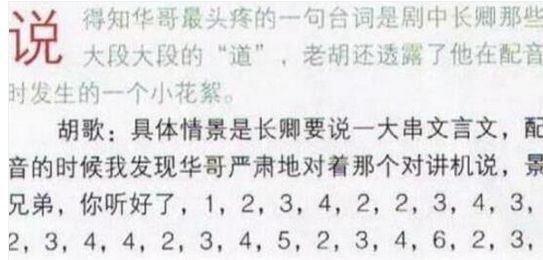 说
得知华哥最头疼的一句台词是剧中长卿那些
大段大段的“道”，老胡还透露了他在配音
时发生的一个小花絮。
胡歌：具体情景是长卿要说一大串文言文，配
音的时候我发现华哥严肃地对着那个对讲机说，景
兄弟，你听好了，1，2，3，4，2，2，3，4，3，
2，3，4，4，2，3，4，5，2，3，4，6，2，3，